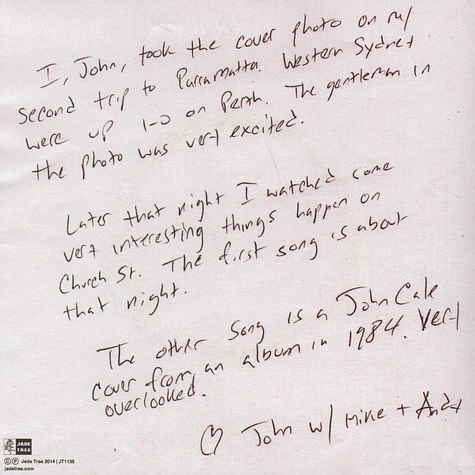 I, John, took the cover photo on my
second trip to Parramatta. Western Sydney
were up 1-0 on Perth. The gentleman in
the photo was very excited.
Later that night I watched some
very interesting things happen on
Church St. The first song is about
that night.
The other song is a John Cale
cover from an album in 1984. Very
overlooked.
♡ John w/ Mike + Andy
JADE
TREE
©℗ Jade Tree 2014 | JT1135
jadetree.com